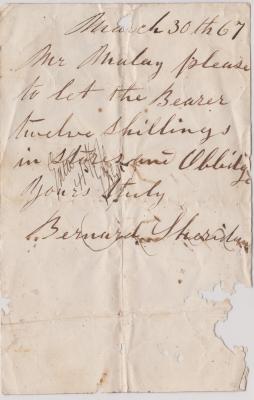 March 30th 67
Mr Mulay please
to let the Bearer
twelve shillings
in stores and Obblidge
Yours truly
Bernard Sheridan